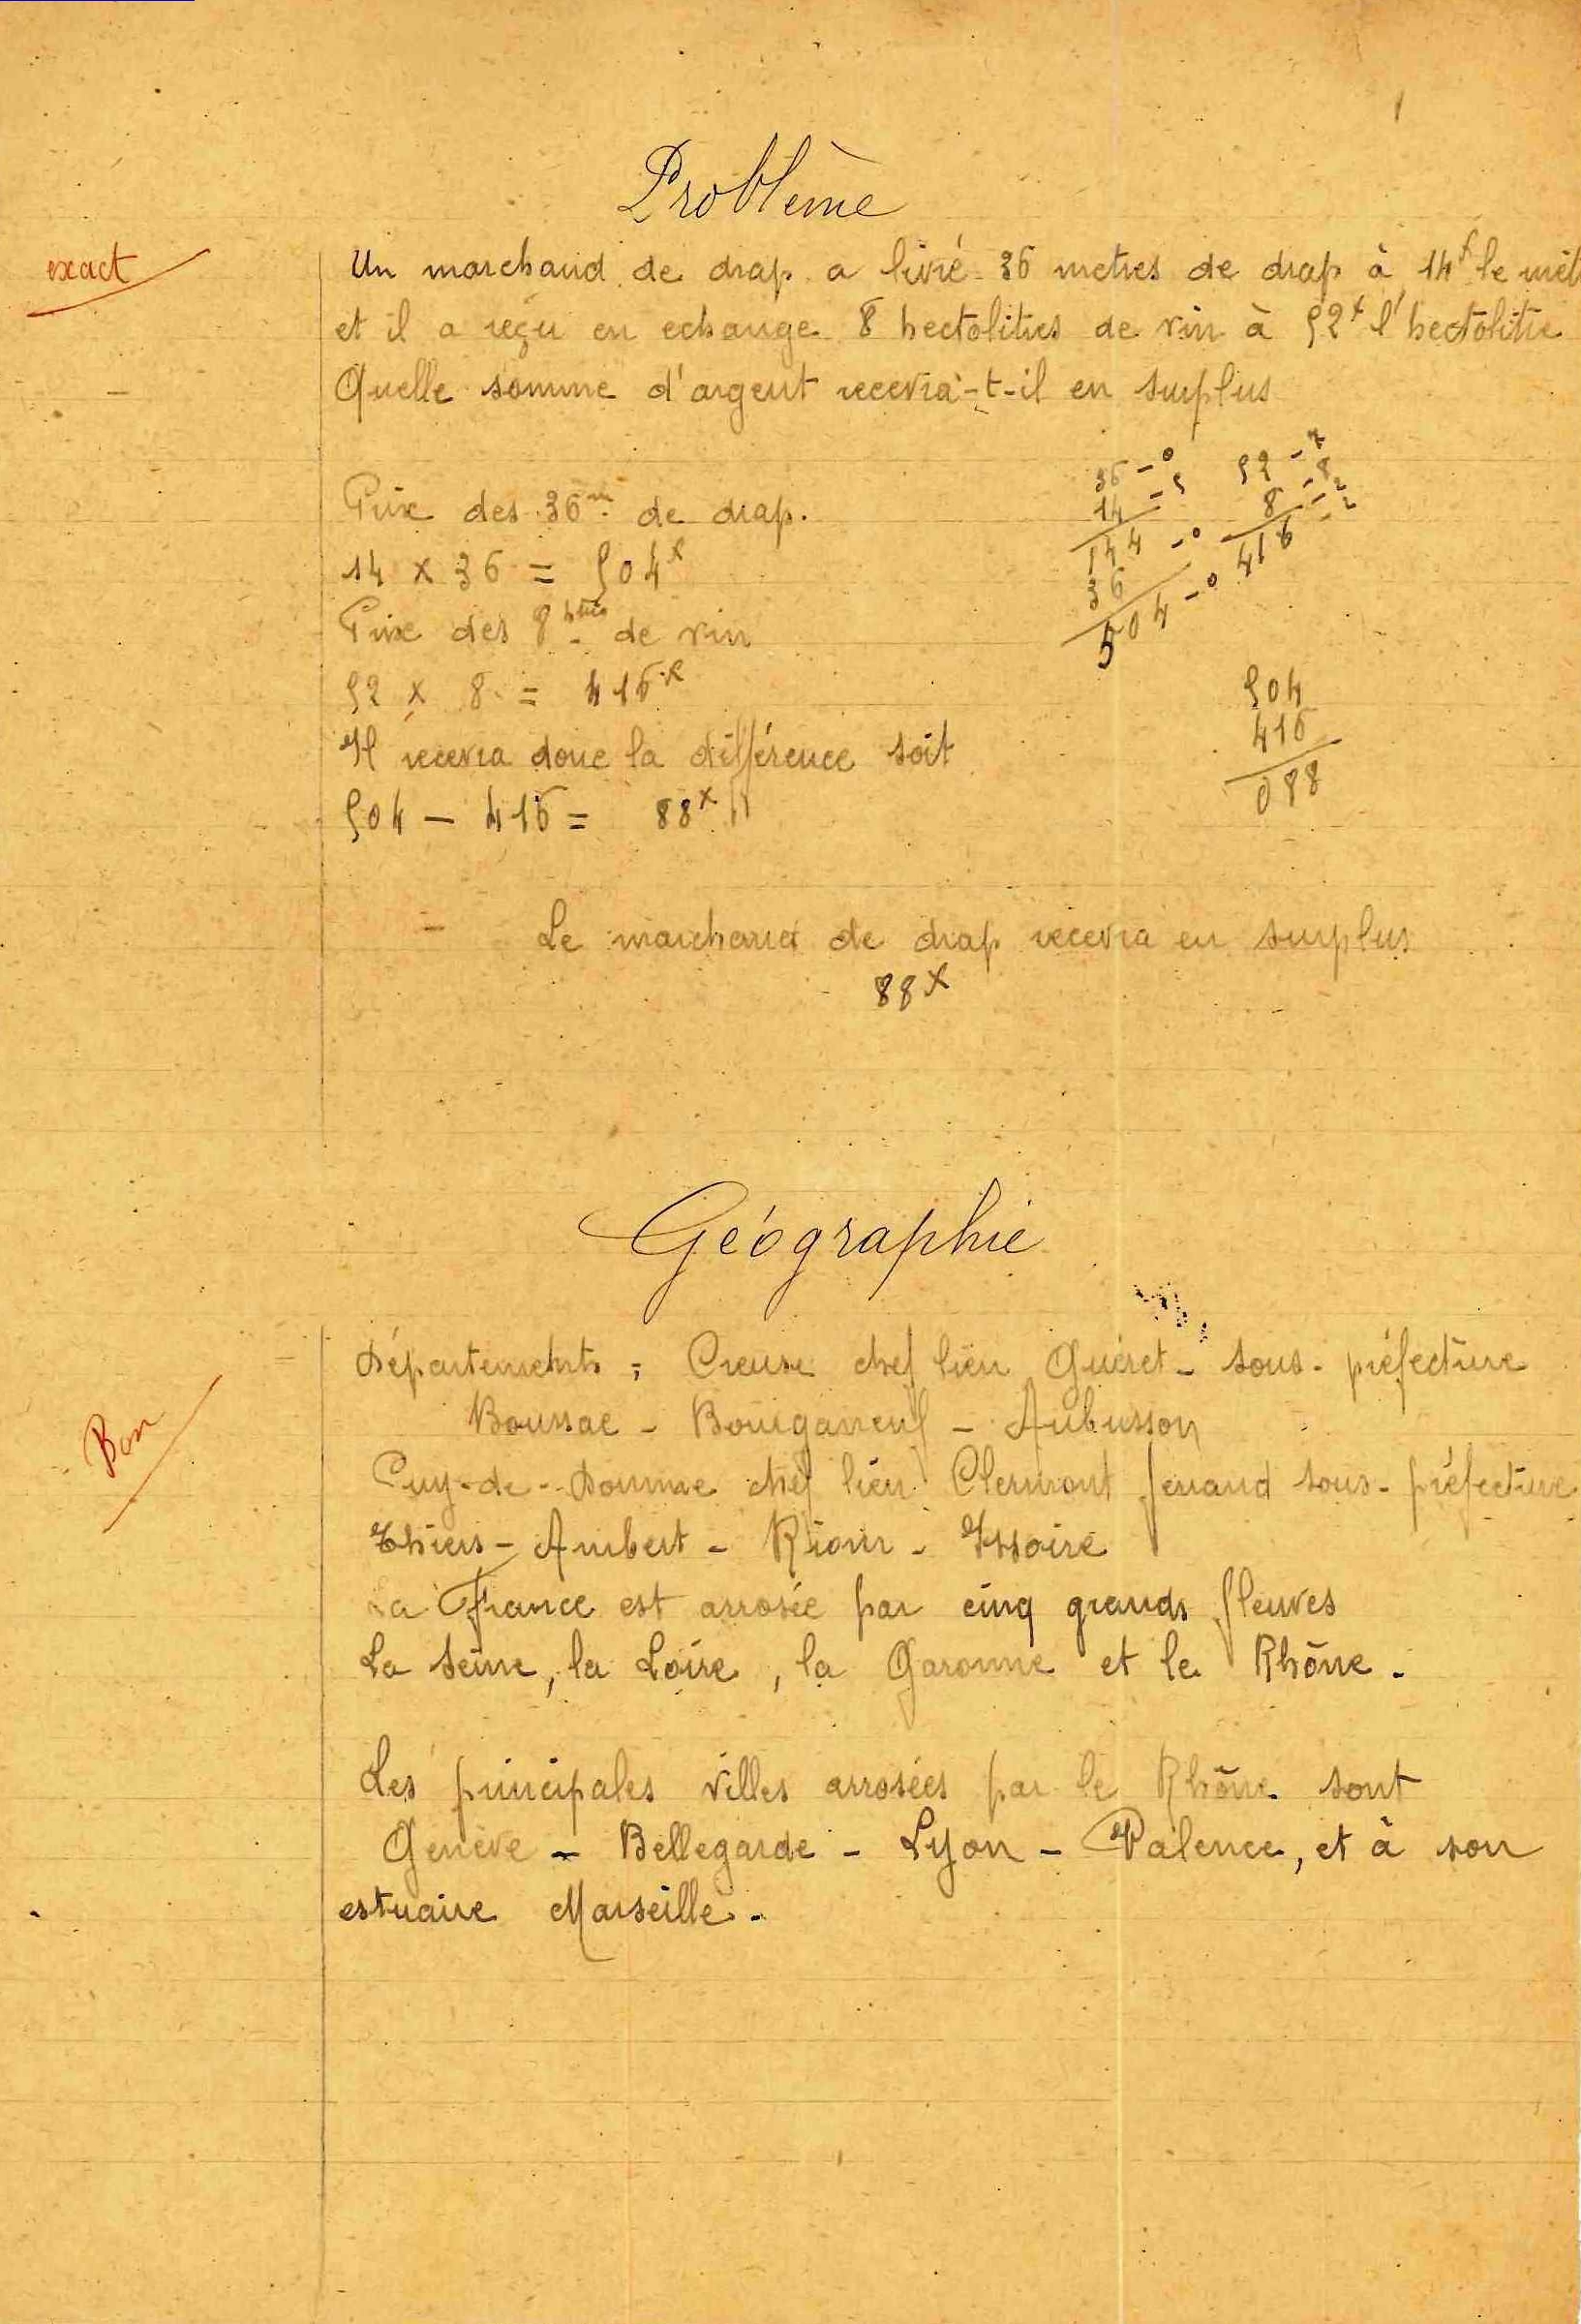 Problème
exact
Un marchand de drap a livré 36 metres de drap à 14f le mèt
et il a reçu en echange 8 hectolitres de vin à 52f l'hectolitre
Quelle somme d'argent recevra-t-il en surplus
Prix des 36m de drap.
14 x 36 = 504f
Prix des 8 de vin
52 x 8 = 416f
Il recevra donc la différence soit
504 - 416 = 88f
36 - 0
14 - 5
144 - 0
36
504 - 0
52 - 7
8 - 8
416
504
416
088
Le marchand de drap recevra en surplus
88f
Géographie
Bon
Départements : Creuse chef lieu Guéret - sous-préfecture
Boussac - Bourganeuf - Aubusson
Puy-de-Domme chef lieu Clermont ferrand sous-préfecture
Thiers - Ambert - Riom - Issoire
La France est arrosée par cinq grands fleuves
La Seine, la Loire, la Garonne et le Rhône.
Les principales villes arrosées par le Rhône sont
Genève - Bellegarde - Lyon - Valence, et à son
estuaire Marseille.